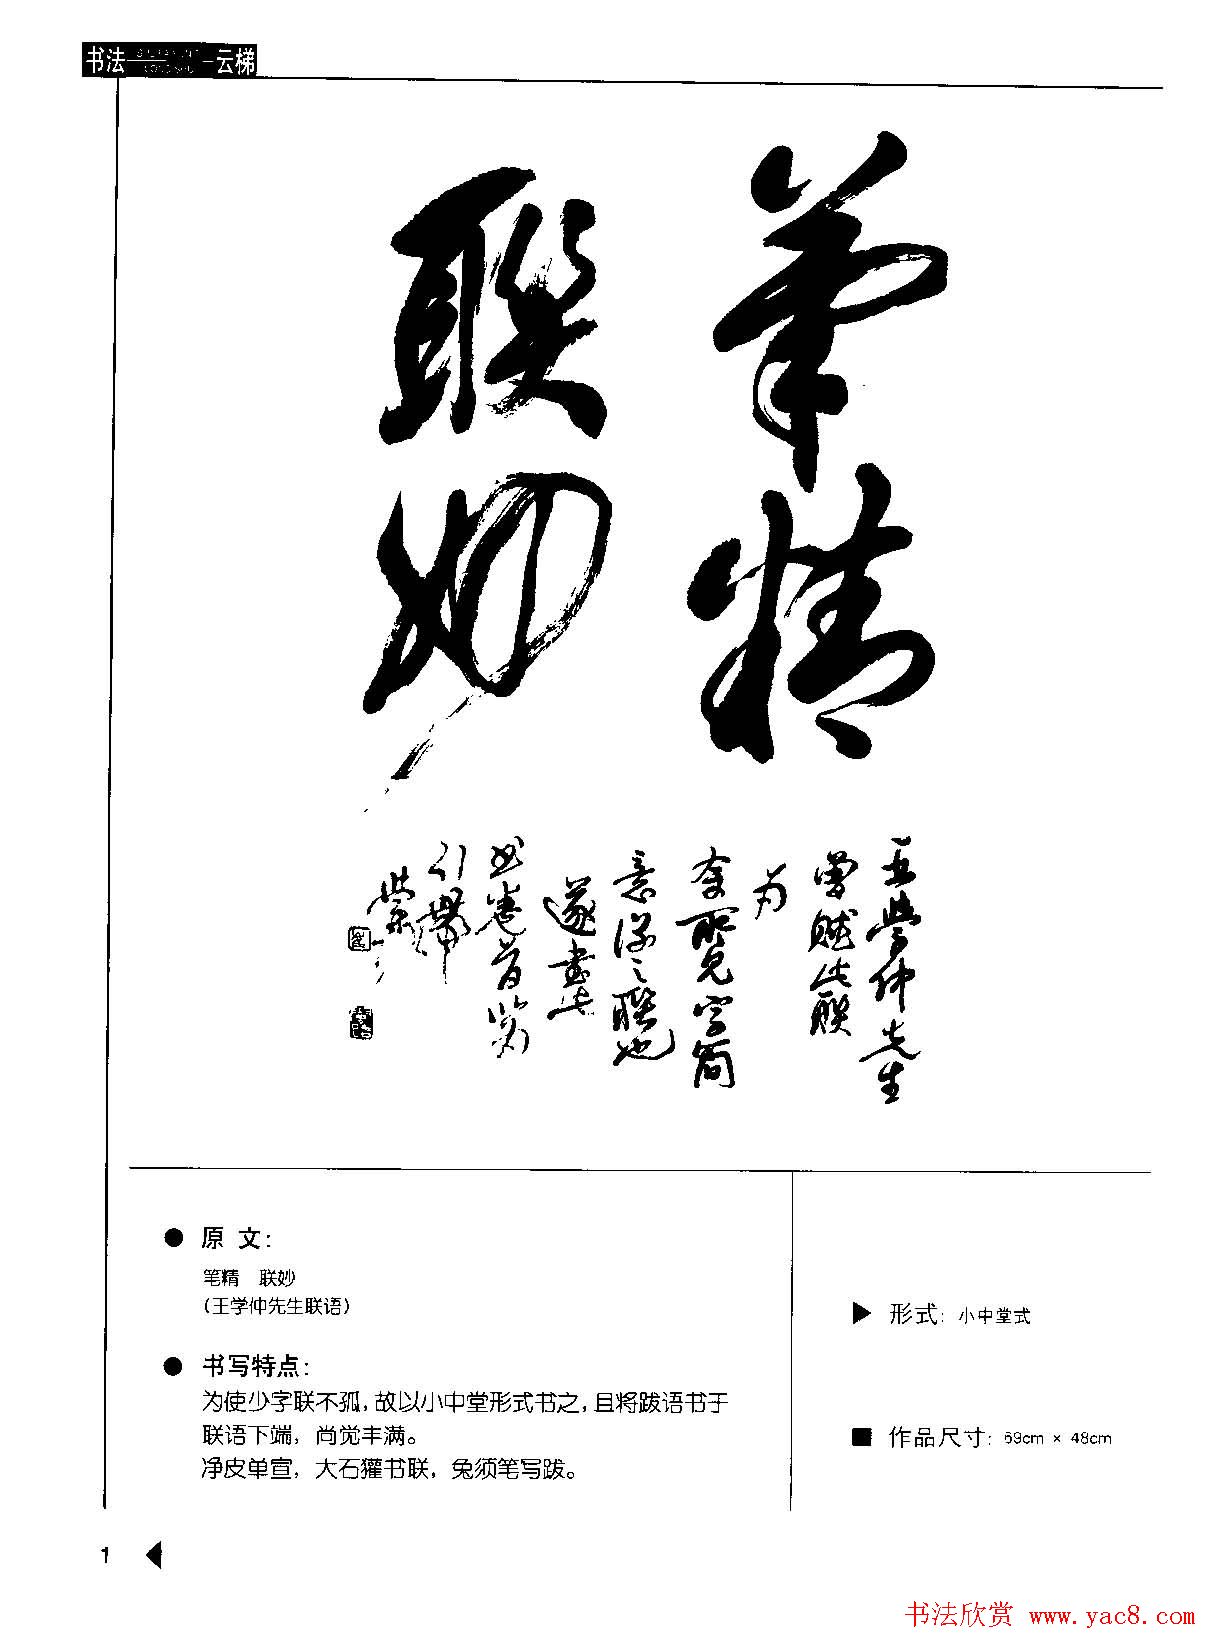 书法 云梯
筆精
聯妙
王學仲先生
曾賦此联
为
余所見字简
意深之聯也
遂書此
於卷首以为
引耀
● 原 文：
笔精 联妙
（王学仲先生联语）
● 书写特点：
为使少字联不孤，故以小中堂形式书之，且将跋语书于
联语下端，尚觉丰满。
净皮单宣，大石獾书联，兔须笔写跋。
▶ 形式：小中堂式
■ 作品尺寸：69cm × 48cm
1
书法欣赏 www.yac8.com